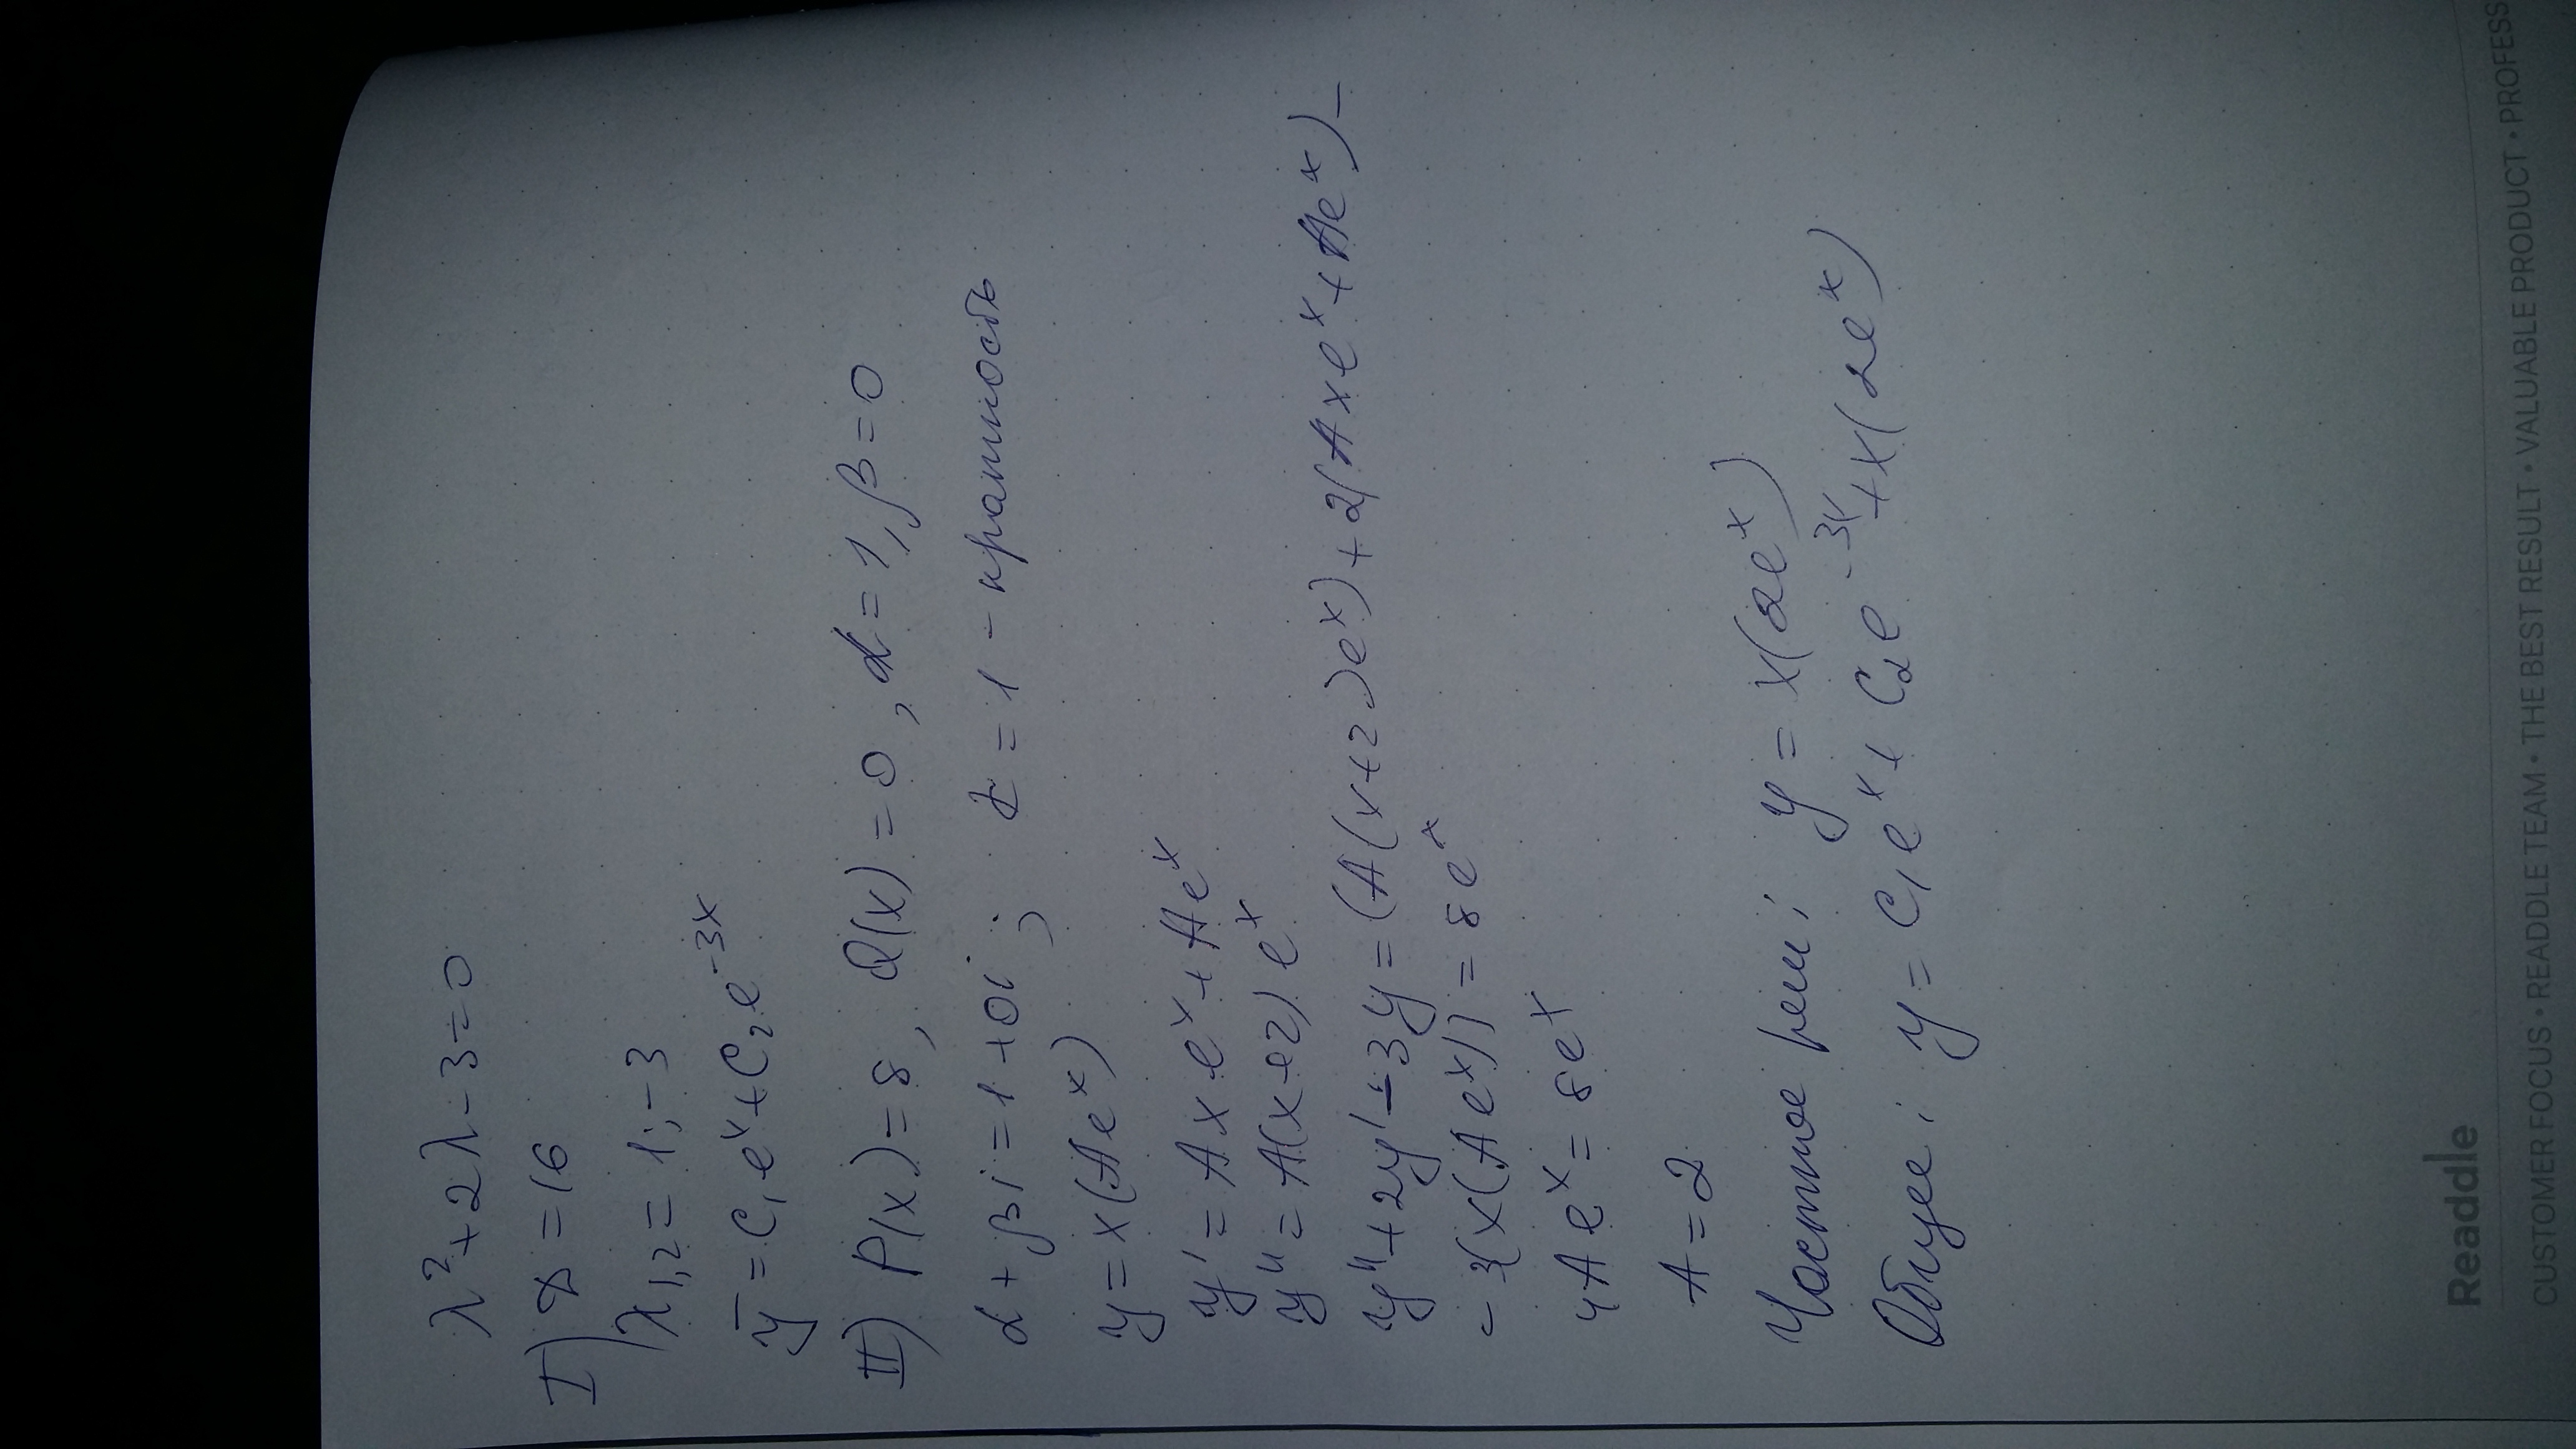 λ²+2λ-3=0
I) D=16
λ1,2=1;-3
y̅=C₁eˣ+C₂e⁻³ˣ
II) P(x)=8, Q(x)=0, α=1, β=0
α+βi=1+0i; r=1-кратность
y=x(Aeˣ)
y'=Axeˣ+Aeˣ
y''=A(x+2)eˣ
y''+2y'-3y=(A(x+2)eˣ)+2(Axeˣ+Aeˣ)-
-3(x(Aeˣ))=8eˣ
4Aeˣ=8eˣ
A=2
Частное реш: y=x(2eˣ)
Общее: y=C₁eˣ+C₂e⁻³ˣ+x(2eˣ)
Readdle
CUSTOMER FOCUS • READDLE TEAM • THE BEST RESULT • VALUABLE PRODUCT • PROFESS